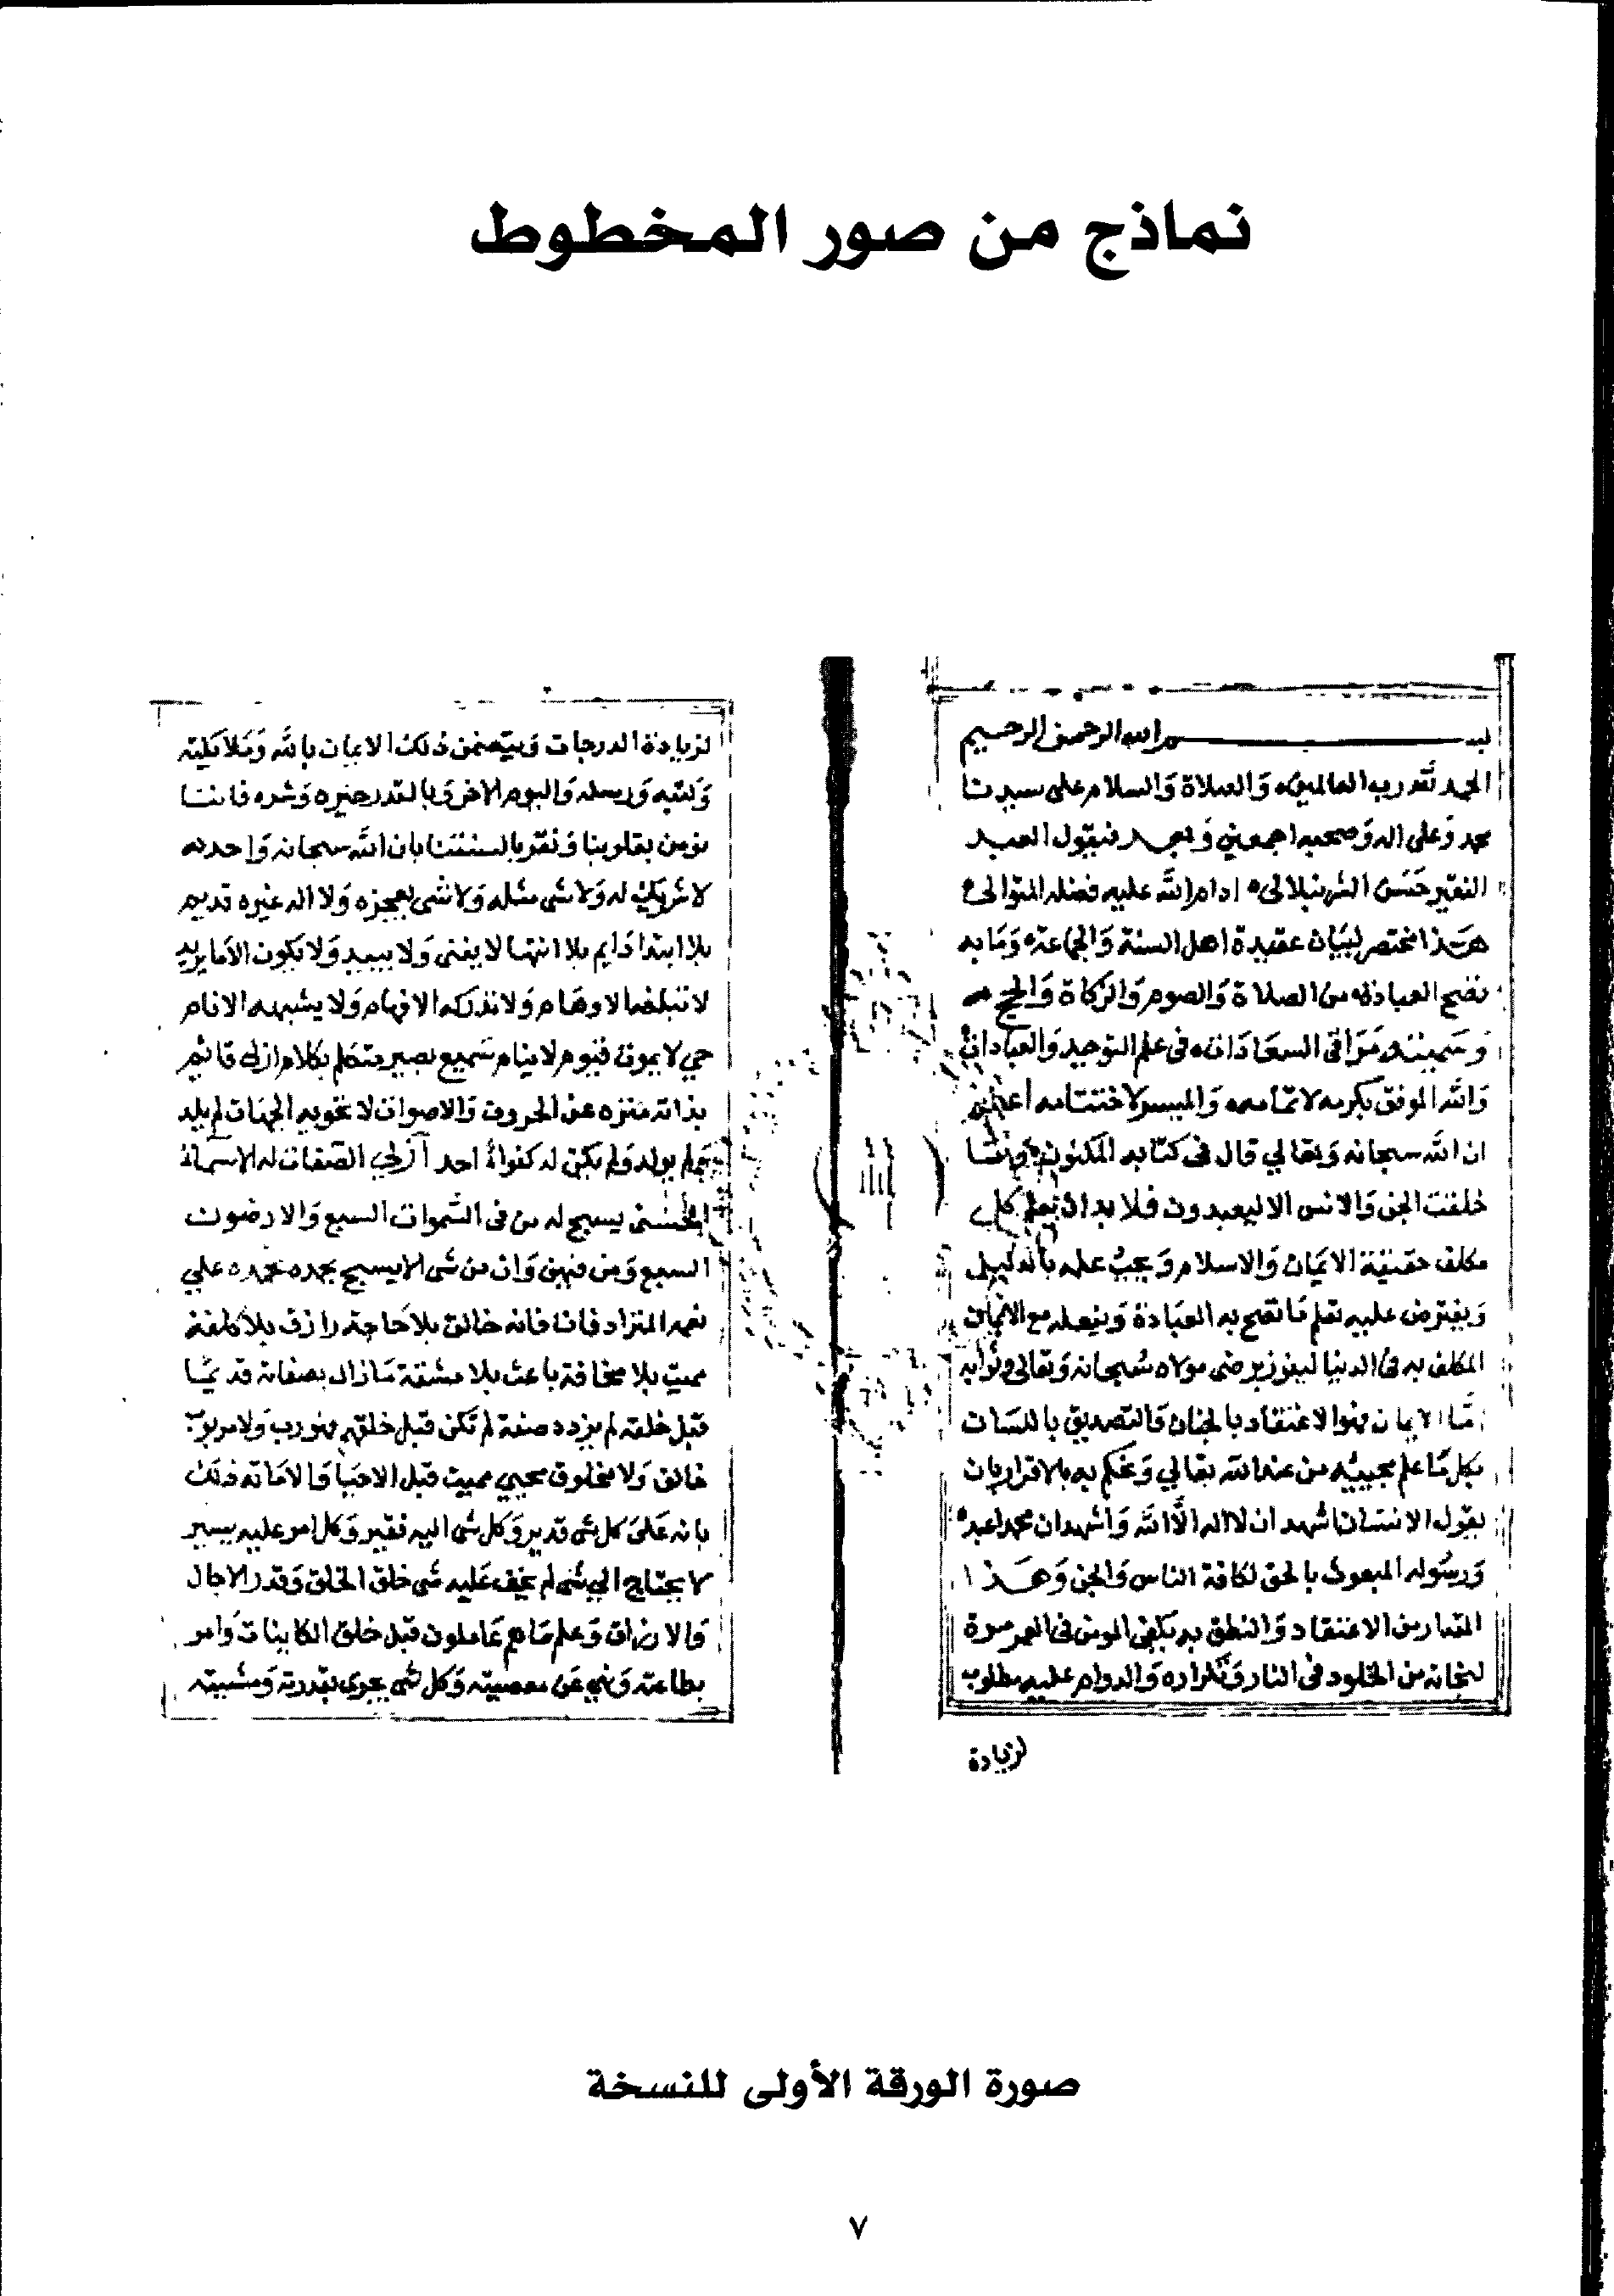 نماذج من صور المخطوط
بسم الله الرحمن الرحيم
الحمد لله رب العالمين والصلاة والسلام على سيدنا
محمد وعلى اله وصحبه اجمعين وبعد فيقول العبد
الفقير حسن الشرنبلالى ادام الله عليه فضله المتوالى
هذا مختصر لبيان عقيدة اهل السنة والجماعة وما به
تصح العبادة من الصلاة والصوم والزكاة والحج
وسميته مراقى السعادات فى علم التوحيد والعبادات
والله الموفق بكرمه لاتمامه والميسر لاختتامه
ان الله سبحانه وتعالي قال فى كتابه المكنون وما
خلقت الجن والانس الا ليعبدون فلا بد ان يعلم كل
مكلف حقيقة الايمان والاسلام ويجب علمه بالدليل
ويفترض عليه تعلم ما تصح به العبادة ويفعله مع الاتيان
المكلف به فى الدنيا ليفوز برضى مولاه سبحانه وتعالى وثوابه
اما الايمان فهوا الاعتقاد بالجنان والتصديق باللسان
بكل ما علم مجييه من عند الله تعالي ويحكم به بالاقرار بان
يقول الانسان اشهد ان لا اله الا الله واشهد ان محمدا عبده
ورسوله المبعوث بالحق لكافة الناس والجن وهذا
المقدار من الاعتقاد والنطق به يكفى المومن فى العمر مرة
لنجاته من الخلود فى النار وتكراره والدوام عليه مطلوب
لزيادة
لزيادة الدرجات ويتضمن ذلك الايمان بالله وملايكته
وكتبه ورسله واليوم الاخر وبالقدر خيره وشره فاننا
نومن بقلوبنا ونقر بالسنتنا بان الله سبحانه واحد
لا شريك له ولا شى مثله ولا شى يعجزه ولا اله غيره قديم
بلا ابتدا دايم بلا انتها لا يفنى ولا يبيد ولا يكون الا ما يريد
لا تبلغه الاوهام ولا تدركه الافهام ولا يشبهه الانام
حي لا يموت قيوم لا ينام سميع بصير متكلم بكلام ازلى قائم
بذاته منزه عن الحروف والاصوات لا تحويه الجهات لم يلد
ولم يولد ولم يكن له كفوا احد ازلي الصفات له الاسما
الحسنى يسبح له من فى السموات السبع والارضون
السبع ومن فيهن وان من شى الا يسبح بحمده نحمده علي
نعمه المتزادفات فانه خالق بلا حاجة رازق بلا كلفة
مميت بلا مخافة باعث بلا مشقة ما زال بصفاته قديما
قبل خلقه لم يزدد صفة لم تكن قبل خلقهم فهو رب ولا مربوب
خالق ولا مخلوق محيي مميت قبل الاحيا والاماته ذلك
بانه على كل شى قدير وكل شى اليه فقير وكل امر عليه يسير
لا يحتاج الي شى لم يخف عليه شى خلق الخلق وقدر الاجال
والارزاق وعلم ما هم عاملون قبل خلق الكاينات وامر
بطاعته ونهي عن معصيته وكل شى يجرى بقدرته ومشيته
صورة الورقة الأولى للنسخة
٧